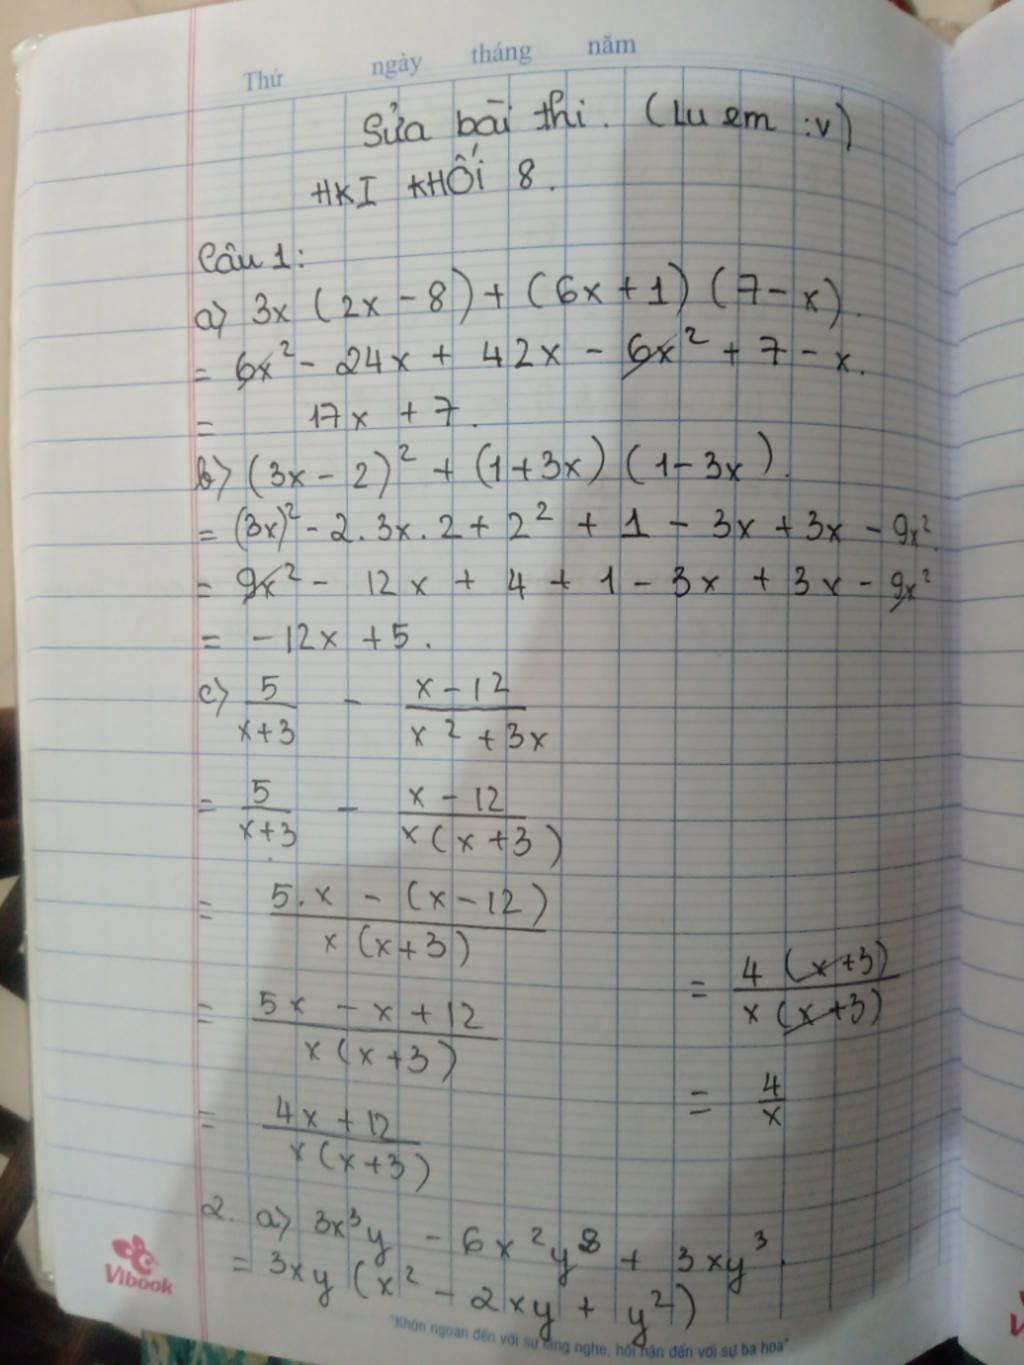 Thứ ngày tháng năm
Sửa bài thi. (Lu em :v)
HKI KHỐI 8.
Câu 1:
a) 3x (2x - 8) + (6x + 1) (7 - x).
= 6x² - 24x + 42x - 6x² + 7 - x.
= 17x + 7.
b) (3x - 2)² + (1 + 3x) (1 - 3x).
= (3x)² - 2.3x.2 + 2² + 1 - 3x + 3x - 9x².
= 9x² - 12x + 4 + 1 - 3x + 3x - 9x²
= - 12x + 5.
c) 5/(x+3) - (x - 12)/(x² + 3x)
= 5/(x+3) - (x - 12)/(x(x+3))
= (5.x - (x - 12))/(x(x+3))
= (5x - x + 12)/(x(x+3))
= (4x + 12)/(x(x+3))
= 4(x+3)/(x(x+3))
= 4/x
2. a) 3x³y - 6x²y² + 3xy³.
= 3xy (x² - 2xy + y²)
Vibook
"Khôn ngoan đến với sự lắng nghe, hối hận đến với sự ba hoa".